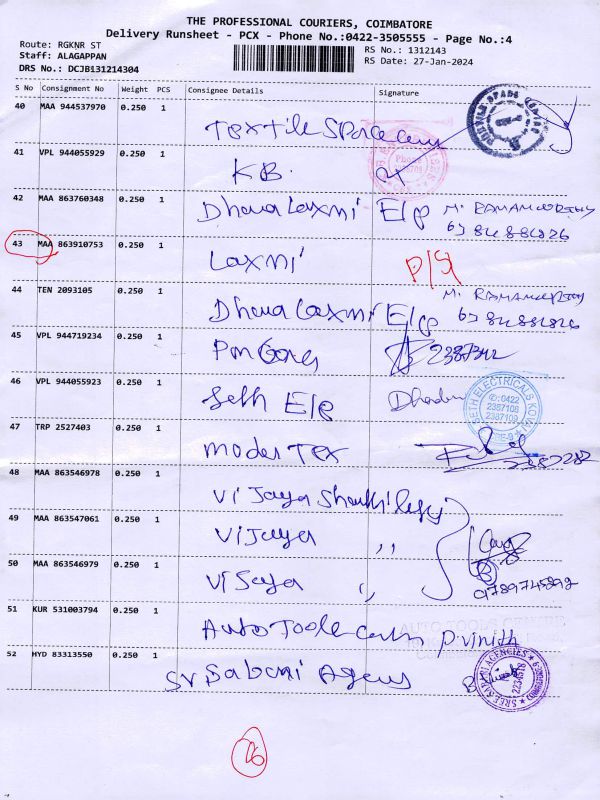 THE PROFESSIONAL COURIERS, COIMBATORE
Delivery Runsheet - PCX - Phone No.:0422-3505555 - Page No.:4
Route: RGKNR ST
RS No.: 1312143
Staff: ALAGAPPAN
RS Date: 27-Jan-2024
DRS No.: DCJB131214304
S No Consignment No Weight PCS Consignee Details Signature
40 MAA 944537970 0.250 1
Textile
41 VPL 944055929 0.250 1
KB
Phone
42 MAA 863760348 0.250 1
Dhana Laxmi E/p M. RAMAMOORTHY
43 MAA 863910753 0.250 1
Laxmi
44 TEN 2093105 0.250 1
Dhana Laxmi E/p M. RAMAMOORTHY
45 VPL 944719234 0.250 1
2387342
46 VPL 944055923 0.250 1
Seth E/p
SETH ELECTRICALS
0422
2387108
2387109
47 TRP 2527403 0.250 1
Moder Tex
48 MAA 863546978 0.250 1
Vijaya
49 MAA 863547061 0.250 1
Vijaya ,,
50 MAA 863546979 0.250 1
Vijaya ,,
9789745892
51 KUR 531003794 0.250 1
AUTO TOOLS CENTRE
Auto Toole P. Vinith
52 HYD 83313550 0.250 1
Sri Sabari Agency
SREE SABARI AGENCIES
26